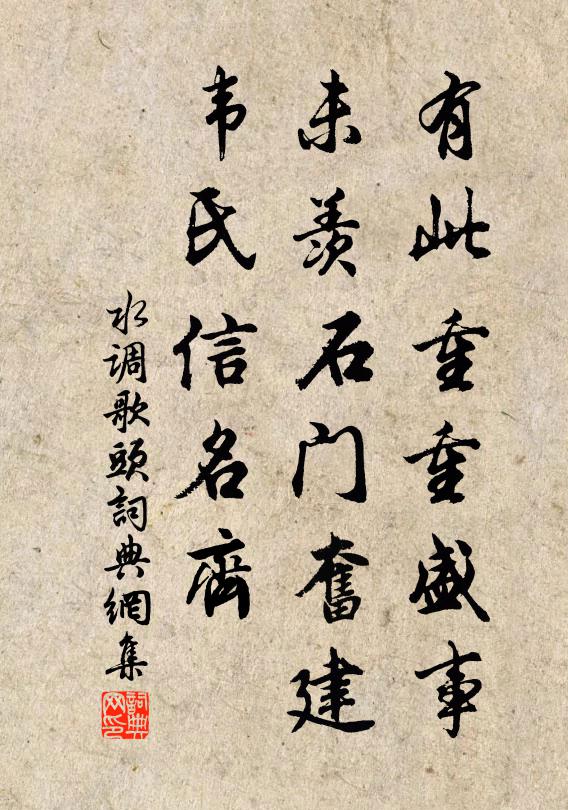 有此重重盛事
未羡石门奮建
韦氏信名齊
水调歌頭詞典網集
詞典网印